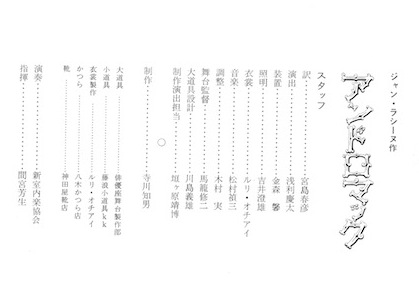 ジャン・ラシーヌ作
アンドロマック
スタッフ
訳……………宮島春彦
演出……………浅利慶太
装置……………金森 馨
照明……………吉井澄雄
衣裳……………ルリ・オチアイ
音楽……………松村禎三
調整……………木村 実
舞台監督……………馬籠修二
大道具設計……………川島義雄
制作演出担当……………垣ヶ原靖博
○
制作……………寺川知男
大道具……………俳優座舞台製作部
小道具……………藤浪小道具kk
衣裳製作……………ルリ・オチアイ
かつら……………八木かつら店
靴……………神田屋靴店
演奏……………新室内楽協会
指揮……………間宮芳生